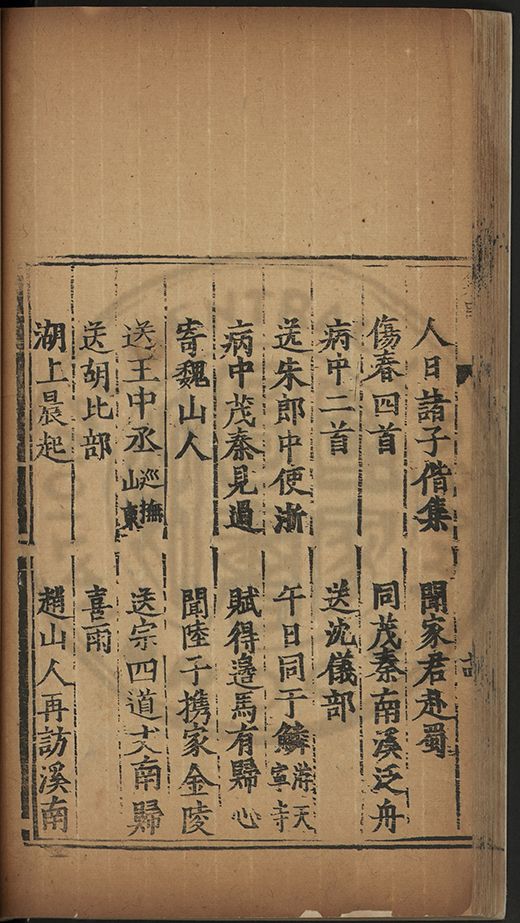 人日諸子偕集　聞家君赴蜀
傷春四首　同茂秦南溪泛舟
病中二首　送沈儀部
送朱郎中使浙　午日同于鱗游天寧寺
病中茂秦見過　賦得邊馬有歸心
寄魏山人　聞陸子携家金陵
送王中丞巡撫山東　送宗四道丈南歸
送胡比部　喜雨
湖上晨起　趙山人再訪溪南